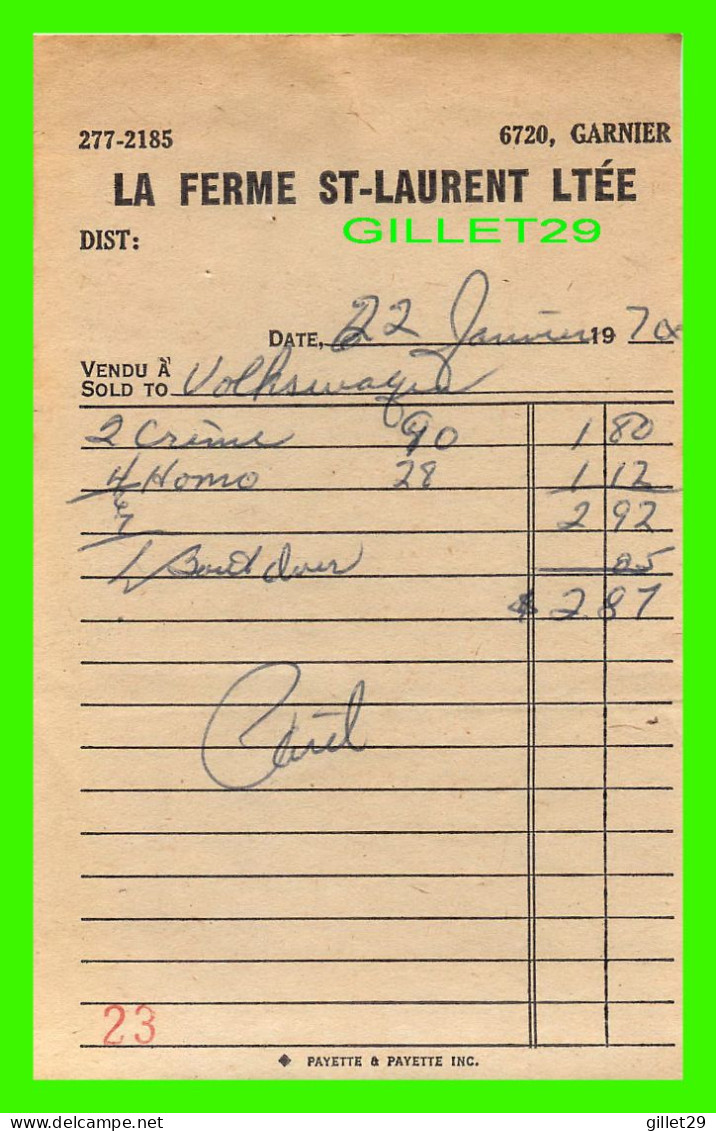 277-2185 6720, GARNIER
LA FERME ST-LAURENT LTÉE
DIST: GILLET29
DATE, 22 Janvier 1970
VENDU À
SOLD TO Volkswagen
2 Crème 90 1 80
4 Homo 28 1 12
2 92
1 05
$ 2 87
23
PAYETTE & PAYETTE INC.
gillet29